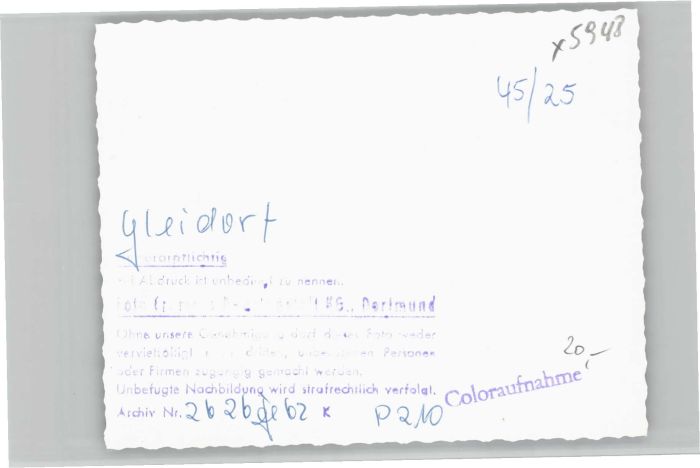 x5948
45/25
Gleidorf
Bei Abdruck ist unbedingt zu nennen:
Foto KG., Dortmund
Ohne unsere Genehmigung darf dieses Foto weder
vervielfältigt dritten, unbefugten Personen
oder Firmen zugängig gemacht werden.
Unbefugte Nachbildung wird strafrechtlich verfolgt.
Archiv Nr. K P 210
Coloraufnahme
20,-